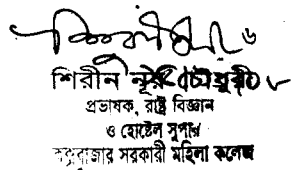 শিরীন নূর চৌধুরী
প্রভাষক, রাষ্ট্র বিজ্ঞান
ও হোস্টেল সুপার
কক্সবাজার সরকারী মহিলা কলেজ